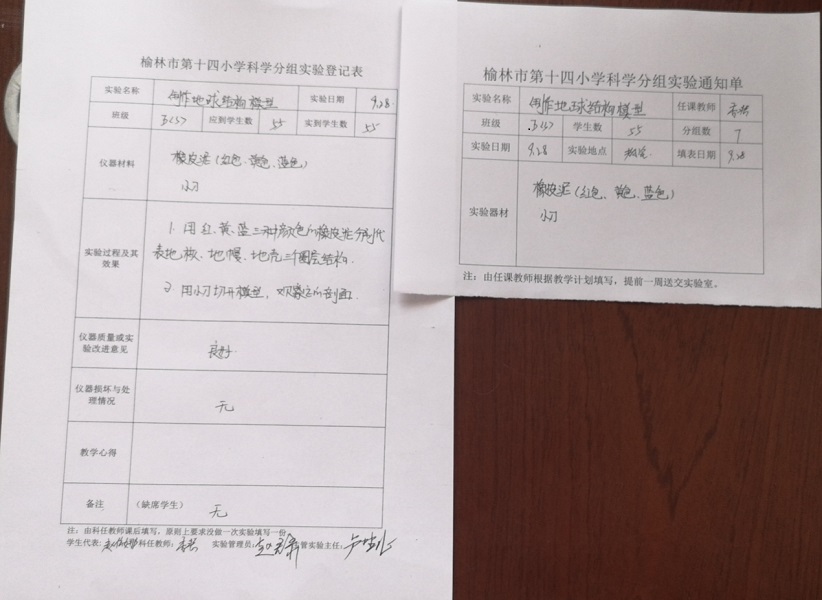 榆林市第十四小学科学分组实验登记表
实验名称 制作地球结构模型 实验日期 9.28
班级 3(5) 应到学生数 55 实到学生数 55
仪器材料 橡皮泥(红色、黄色、蓝色)
小刀
实验过程及其效果 1. 用红、黄、蓝三种颜色的橡皮泥分别代
表地核、地幔、地壳三个圈层结构.
2. 用小刀切开模型,观察它的剖面.
仪器质量或实验改进意见 良好
仪器损坏与处理情况 无
教学心得
备注 (缺席学生) 无
注:由科任教师课后填写,原则上要求没做一次实验填写一份
学生代表: 科任教师: 实验管理员: 管实验主任:
榆林市第十四小学科学分组实验通知单
实验名称 制作地球结构模型 任课教师
班级 3(5) 学生数 55 分组数 7
实验日期 9.28 实验地点 教室 填表日期 9.28
实验器材 橡皮泥(红色、黄色、蓝色)
小刀
注:由任课教师根据教学计划填写,提前一周送交实验室。